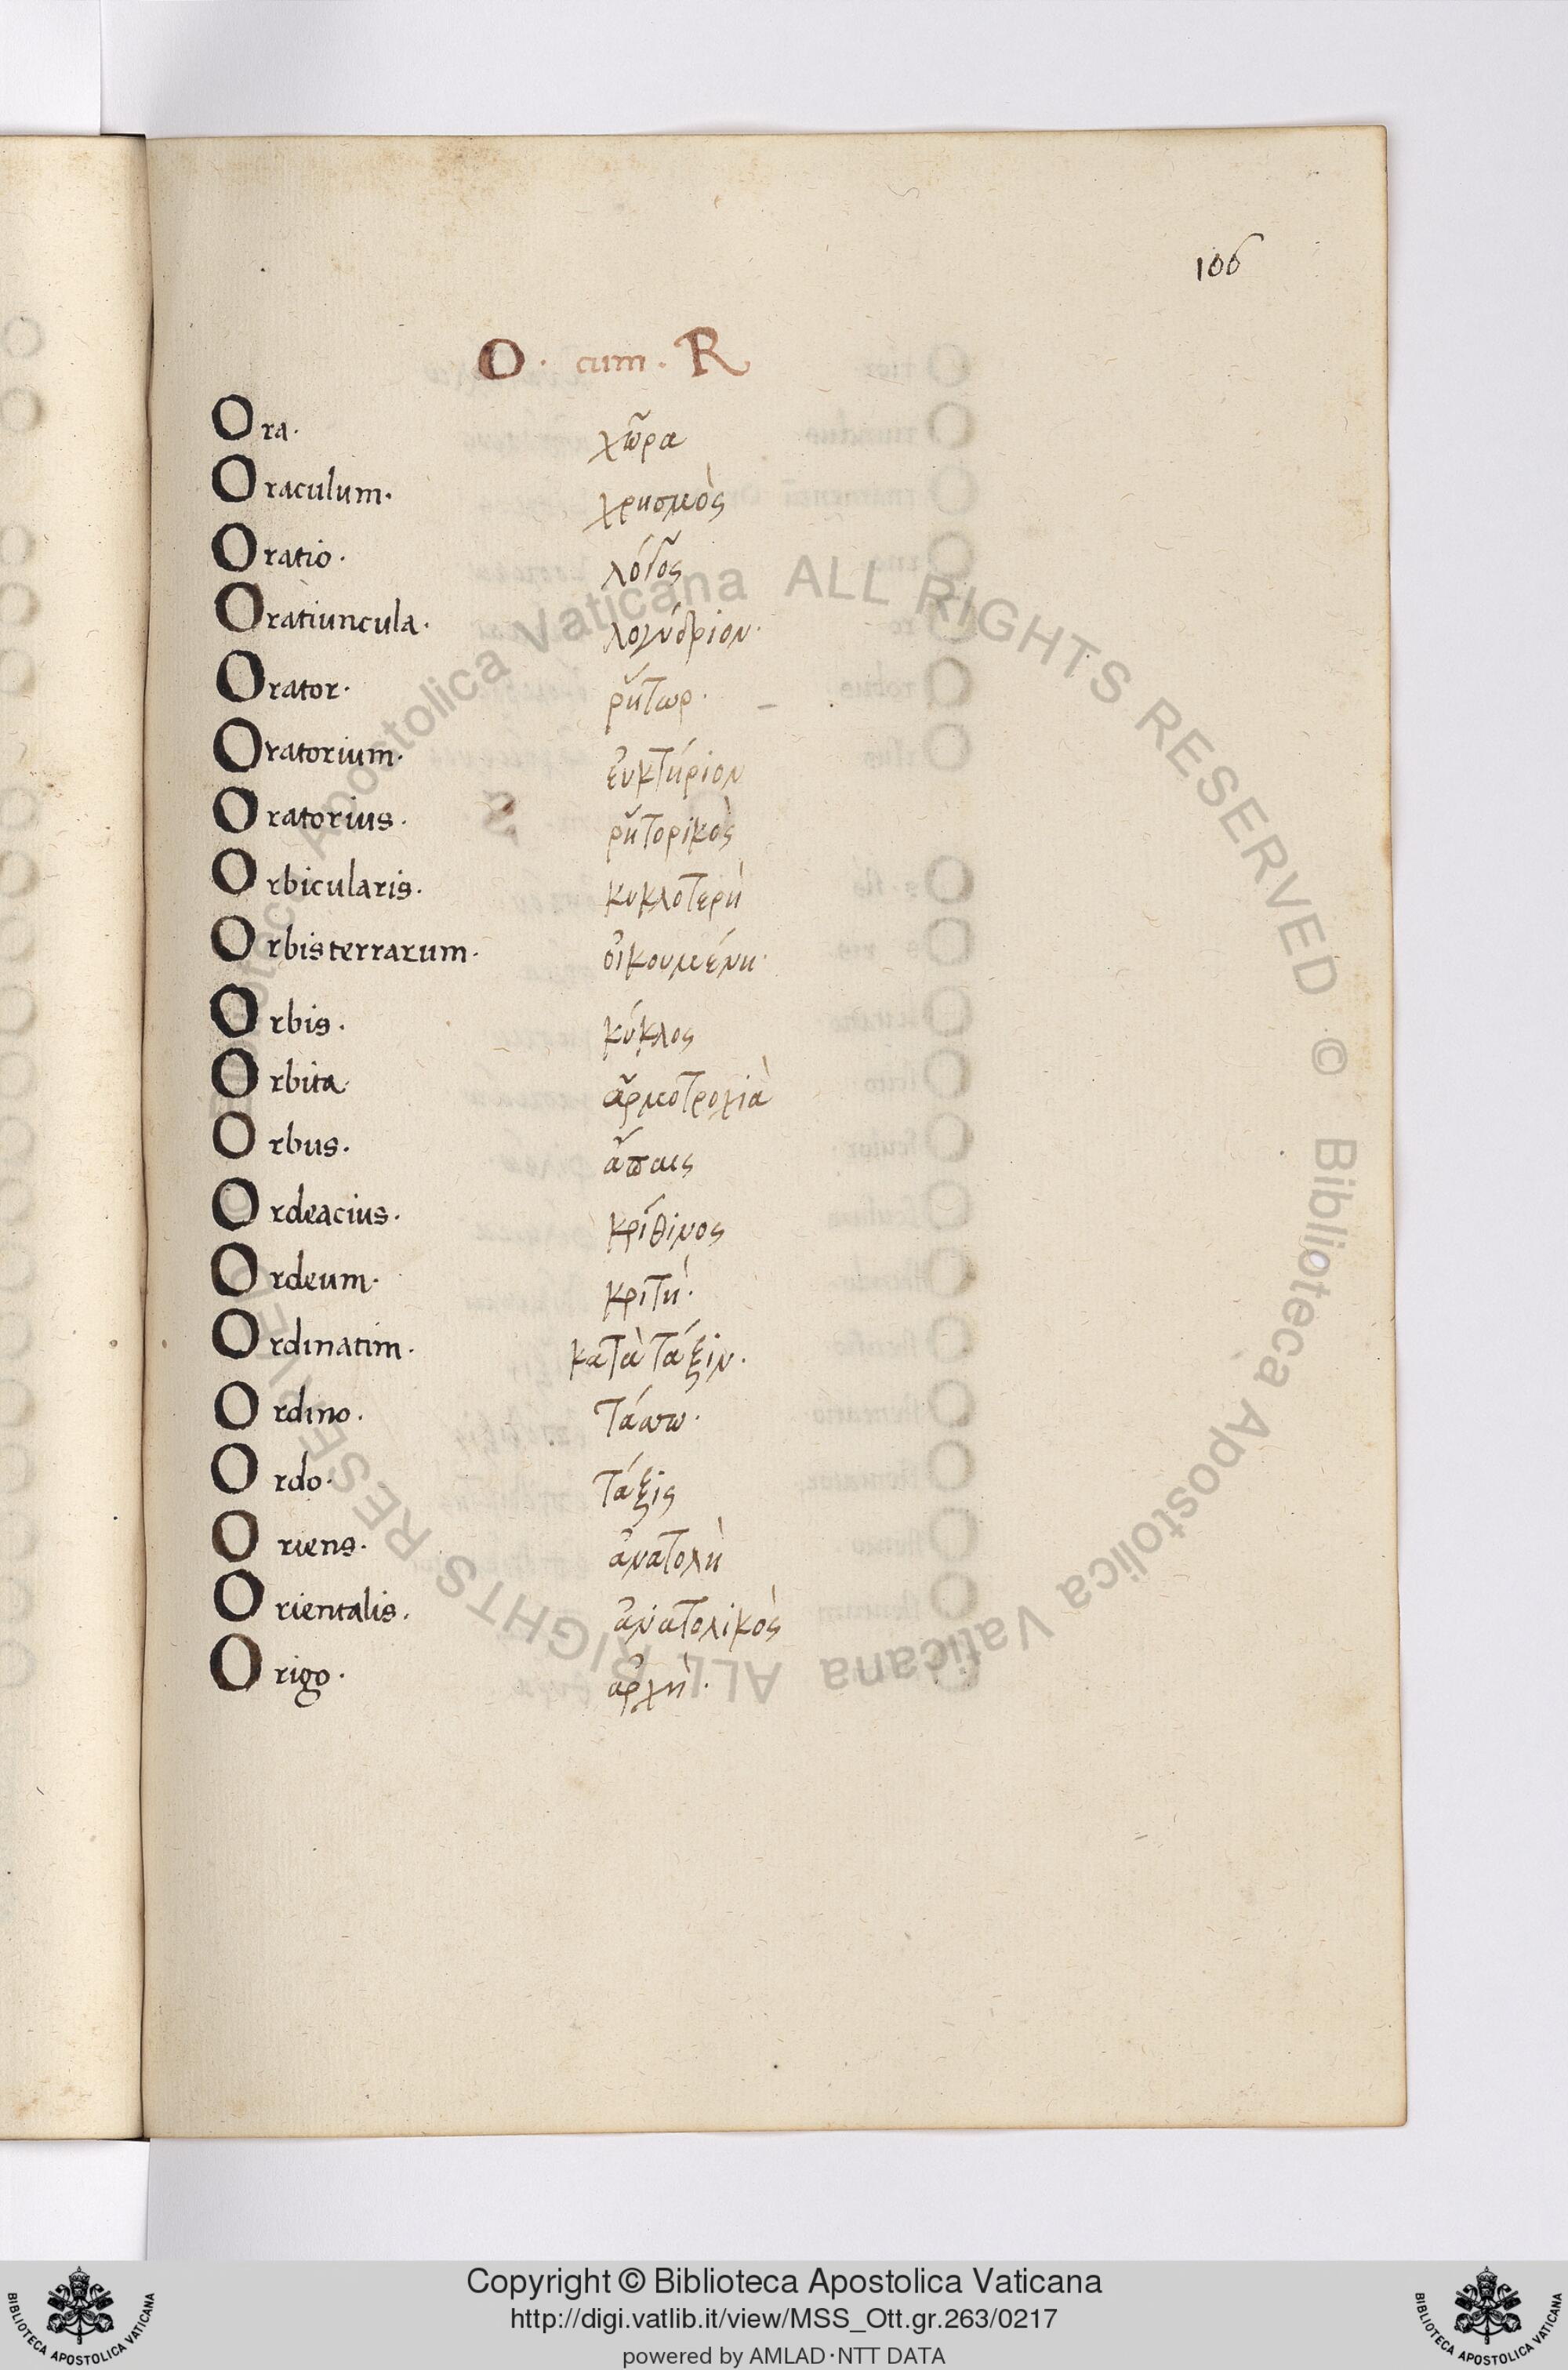 106
O · cum · R
Ora · χῶρα
Oraculum · χρησμὸς
Oratio · λόγος
Oratiuncula · λογύδριον ·
Orator · ρήτωρ ·
Oratorium · ἐυκτήριον
Oratorius · ρητορικὸς
Orbicularis · κυκλοτερὴ
Orbis terrarum · ὀικουμένη ·
Orbis · κύκλος
Orbita ἁρμοτροχιὰ
Orbus · ἄπαις
Ordeacius · κρίθινος
Ordeum · κριτὴ ·
Ordinatim · κατὰ τάξιν ·
Ordino · τάσσω ·
Ordo · τάξις
Oriens · ἀνατολὴ
Orientalis · ἀνατολικὸς
Origo · ἀρχὴ ·
© Biblioteca Apostolica Vaticana ALL RIGHTS RESERVED © Biblioteca Apostolica Vaticana ALL RIGHTS RESERVED
Copyright © Biblioteca Apostolica Vaticana
http://digi.vatlib.it/view/MSS_Ott.gr.263/0217
powered by AMLAD·NTT DATA
BIBLIOTECA APOSTOLICA VATICANA
BIBLIOTECA APOSTOLICA VATICANA